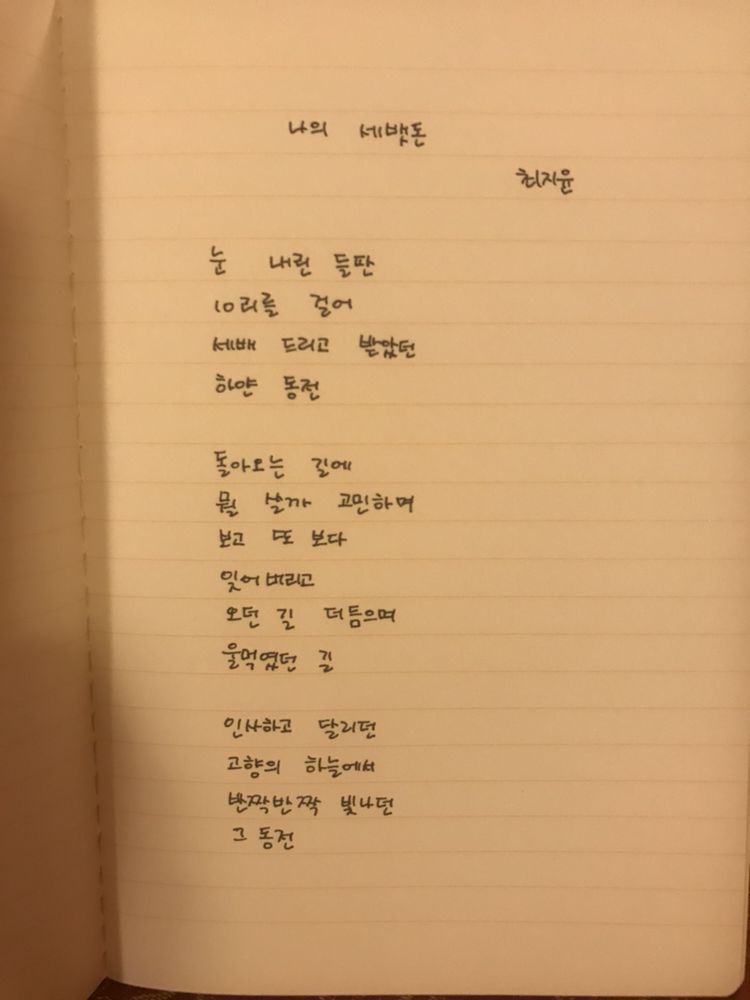 나의 세뱃돈
최지윤
눈 내린 들판
10리를 걸어
세배 드리고 받았던
하얀 동전
돌아오는 길에
뭘 살까 고민하며
보고 또 보다
잊어버리고
오던 길 더듬으며
울먹였던 길
인사하고 달리던
고향의 하늘에서
반짝반짝 빛나던
그 동전